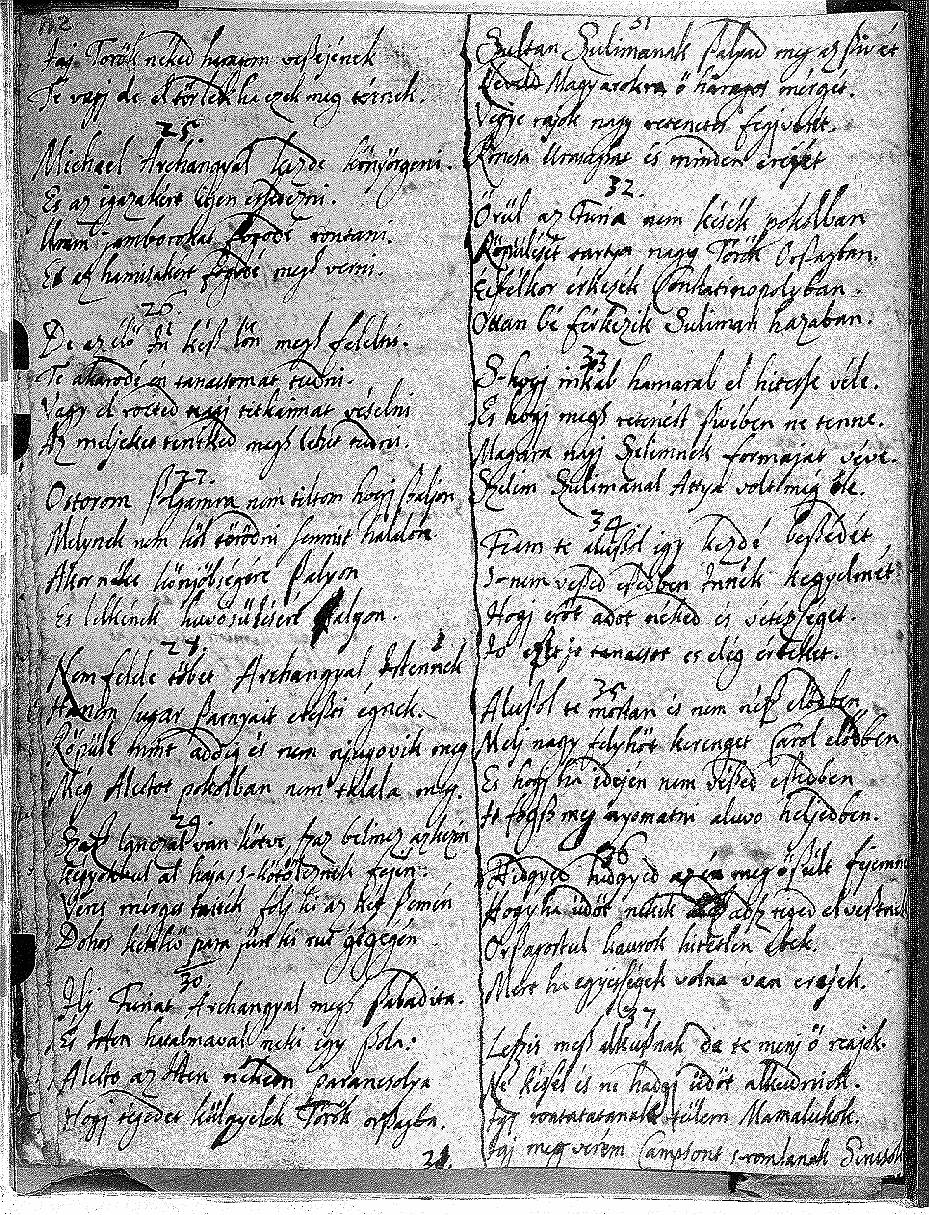 112
Jaj Török néked haragom veßéjének
Te vagj de el törlek ha ezek meg térnek.
25
Michael Archangyal kezde könyörgeni.
Es az igazakért
Uram jamborokat rontani.
Es az hamisakért megh verni.
26
De az élő Ur késß lőn megh felelni.
Te akarodé en tanacsomat tudni.
Vagy el röited nagj titkaimat véselni
Az melljeket tenéked megh lehet tudni.
27
Ostorom ßolgamra nem tiltom hogj ßaljon
Melynek nem köl törödni semmit halálon.
Akor néki könjöbségére ßalyon
Es lelkének üduösülésére ßalyon.
28
Nem felele többet Archangyal Istennek
Hanem sugar ßarnyait ereßti égnek.
Röpüle mind addig és nem njugovik meg
Még Alectot pokolban nem talála meg.
29
Száz lanczal van kötve, száz belincz az kezén
Kegyokbul al haja, s-kötöleznek fején.
Veres mérges foly ki az két ßemén
Dohos kénkő para jüne ki rut gégején
30
Ilj Furiat Archangyal megh ßabadita.
És Isten hatalmaval neki igy ßola:
Alecto az Isten nékem parancsolta
Hogj tegedet külgyelek Török orßagba.
31
Sultan Sulimának ßalyad meg az ßivét
Neveld Magyarokra ő haragos mérgét.
Vegye rájok nagy retenetes fegjverét.
Roncsa Urasagat és minden erejét
32.
Örül az Furia nem késék pokolban
Röpülését tartja nagy Török Orßagban.
Éjfélkor érkezék Constantinopolyban.
Ottan bé férkezik Suliman hazaban.
33
S-hogj inkab hamarab el hitesse véle.
Es hogj megh retenést ßivében ne tenne.
Magara nagj Selimnek formáját véve.
Selim Sulimánal Attya volt még éle.
34
Fiam te alußol igy kezdé beßédét
S-nem veßed eßedben Istennek kegyelmét
Hogj erőt adot néked és vitezséget.
Jo eßt jo tanacsot es elég értéket.
35
Alußol te mostan és nem nézß elődben
Melj nagy felyhőt kerenget Carol elődben
Es hogj ha idején nem veßed eßedben
It fogßz meg nyomatni aluvo heljedben.
36
Hidgyed hidgyed az én meg őßült fejemnek
Hogy ha üdőt nekik adßz teged elveßtnek
Orßagostul kaurok hitetlen ebek.
Mert ha egyeßégek volna van erejek.
37
Lehis megh alkußnak de te menj ő reajok.
Ne késßél és ne hadgj üdőt alkudniok.
Igj rontatatanak tülem Mamalukok.
Igj meg verém Campsont s-romlanak
28.